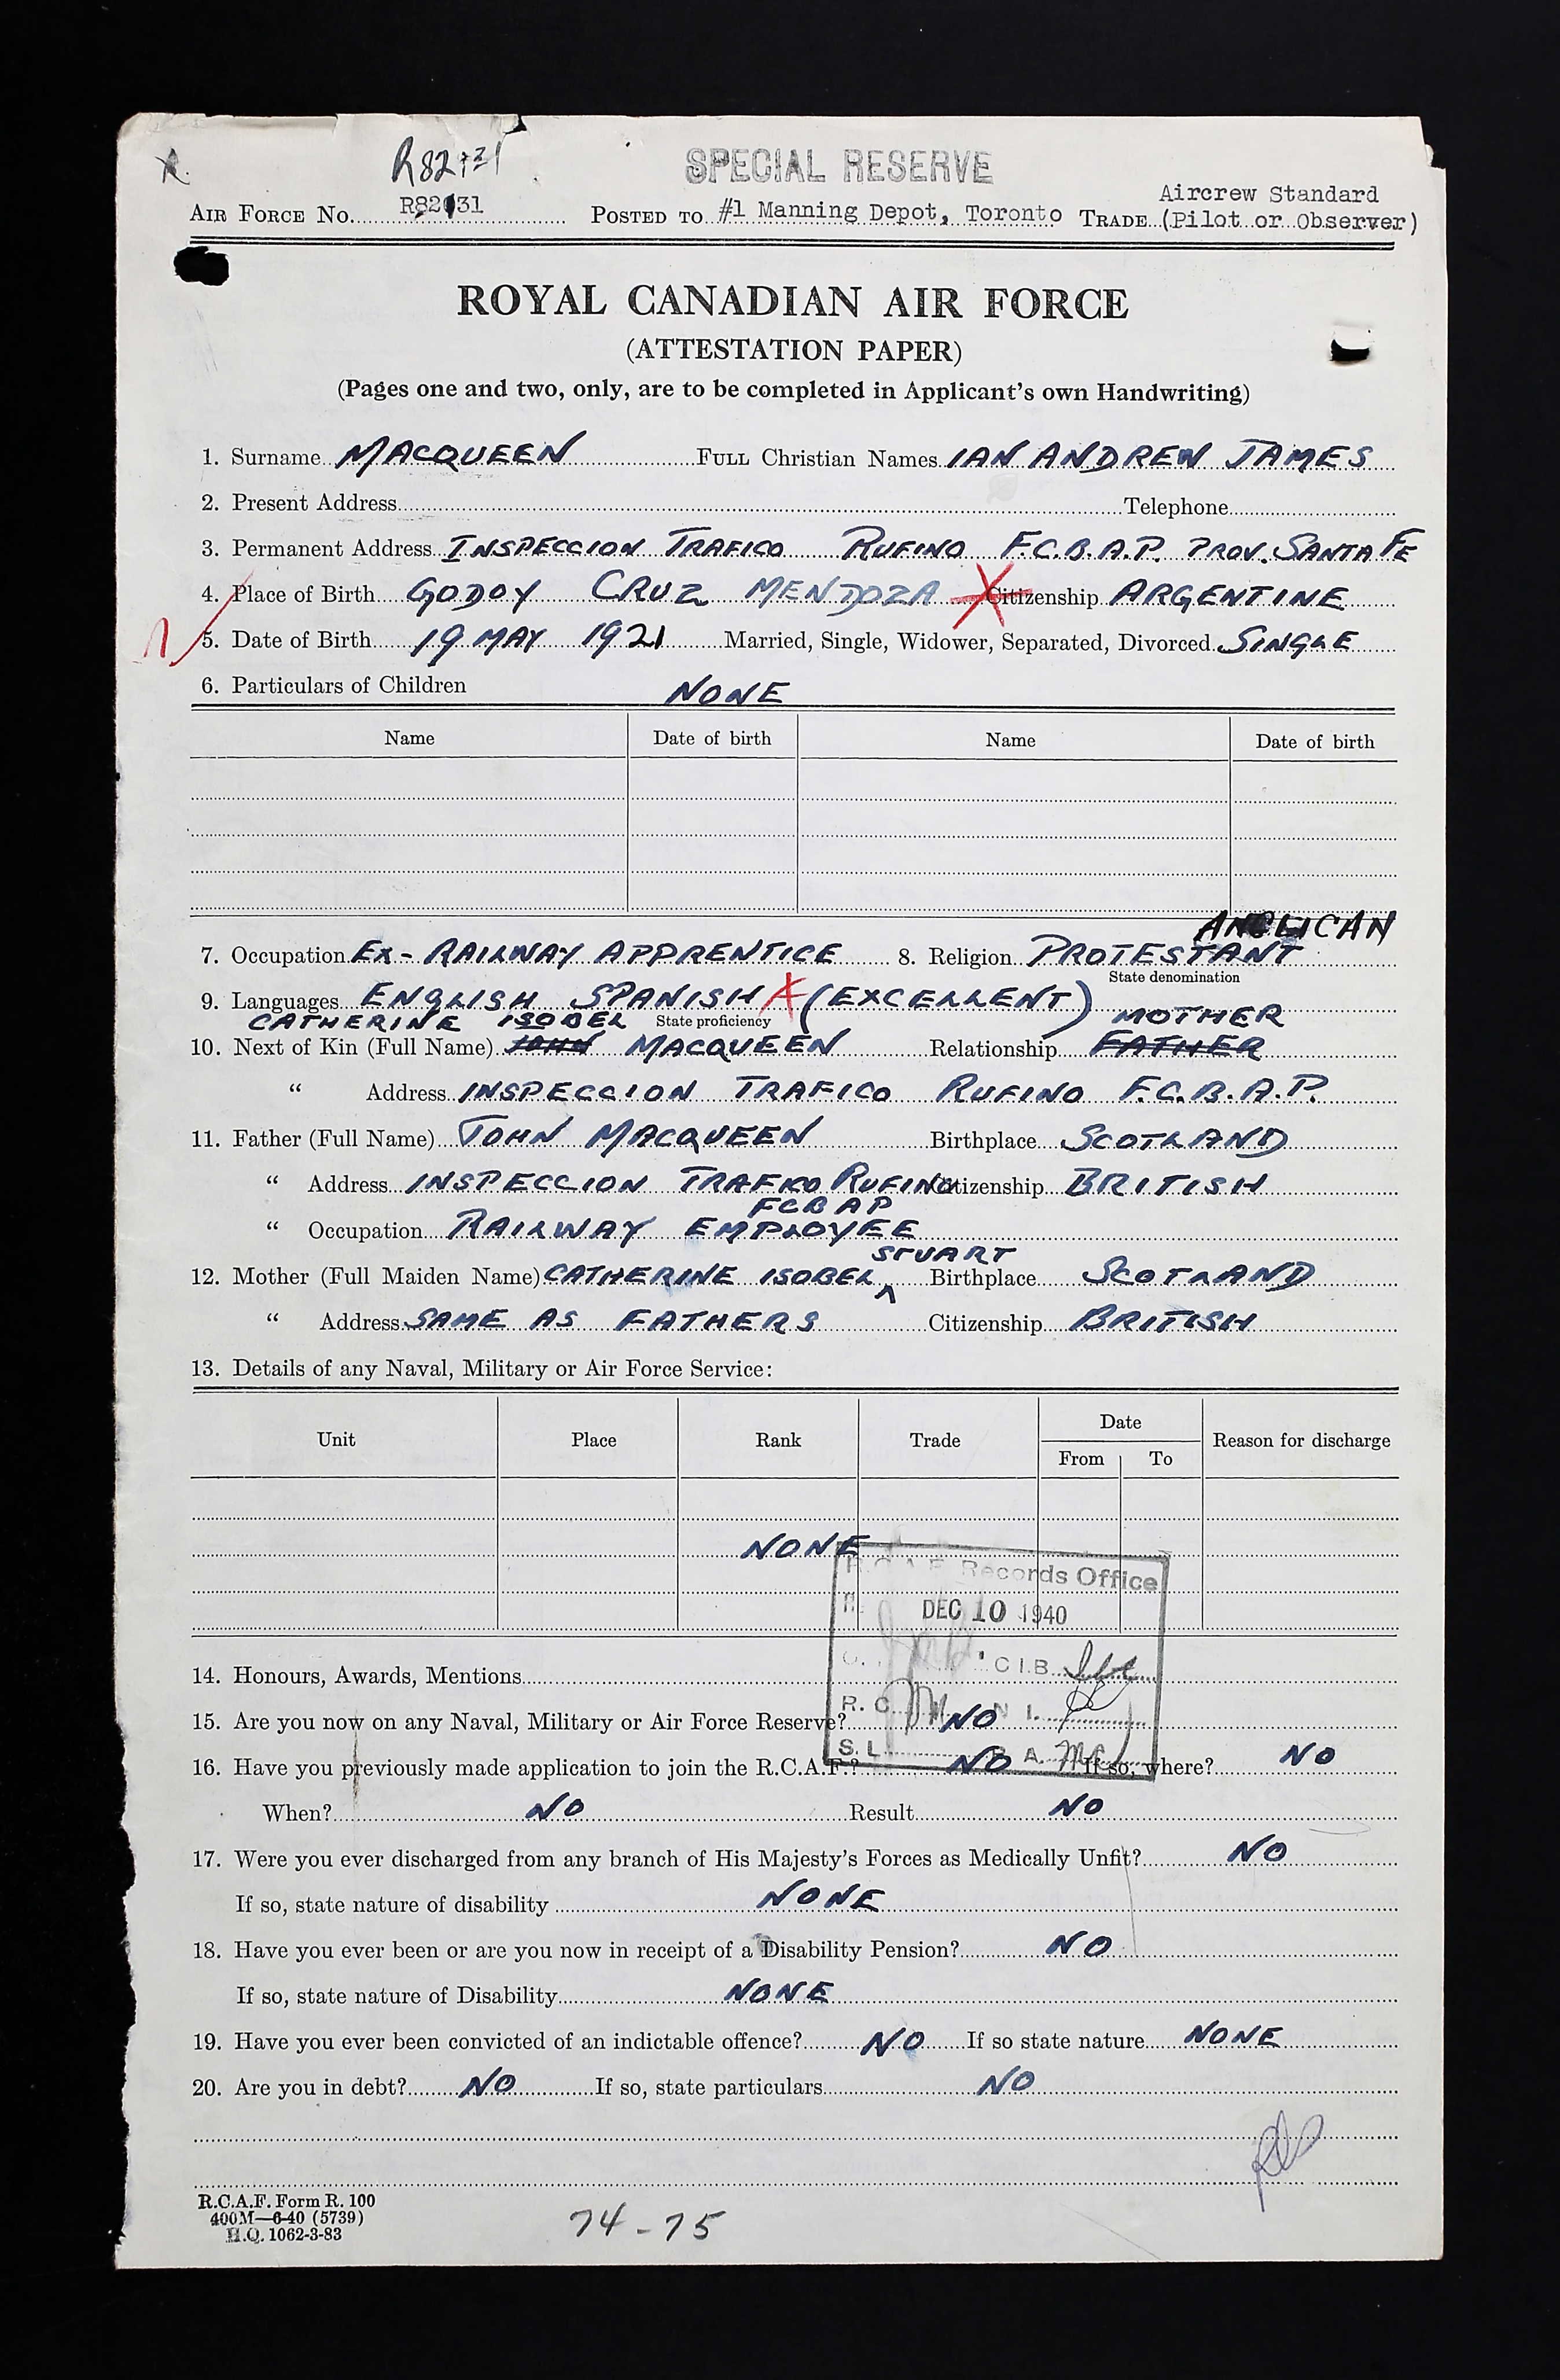 SPECIAL RESERVE
Aircrew Standard
AIR FORCE No. POSTED TO #1 Manning Depot, Toronto TRADE (Pilot or Observer)
ROYAL CANADIAN AIR FORCE
(ATTESTATION PAPER)
(Pages one and two, only, are to be completed in Applicant's own Handwriting)
1. Surname MACQUEEN FULL Christian Names IAN ANDREW JAMES
2. Present Address Telephone
3. Permanent Address INSPECCION TRAFICO RUFINO F.C.B.A.P. PROV. SANTA FE
4. Place of Birth GODOY CRUZ MENDOZA Citizenship ARGENTINE
5. Date of Birth 19 MAY 1921 Married, Single, Widower, Separated, Divorced SINGLE
6. Particulars of Children NONE
Name Date of birth Name Date of birth
ANGLICAN
7. Occupation EX-RAILWAY APPRENTICE 8. Religion PROTESTANT
State denomination
9. Languages ENGLISH SPANISH (EXCELLENT)
State proficiency
CATHERINE ISOBEL MOTHER
10. Next of Kin (Full Name) JOHN MACQUEEN Relationship FATHER
" Address INSPECCION TRAFICO RUFINO F.C.B.A.P.
11. Father (Full Name) JOHN MACQUEEN Birthplace SCOTLAND
" Address INSPECCION TRAFICO RUFINO Citizenship BRITISH
FCBAP
" Occupation RAILWAY EMPLOYEE
STUART
12. Mother (Full Maiden Name) CATHERINE ISOBEL Birthplace SCOTLAND
" Address SAME AS FATHERS Citizenship BRITISH
13. Details of any Naval, Military or Air Force Service:
Unit Place Rank Trade Date Reason for discharge
From To
NONE
R.C.A.F. Records Office
DEC 10 1940
C.I.B.
14. Honours, Awards, Mentions
15. Are you now on any Naval, Military or Air Force Reserve? NO
16. Have you previously made application to join the R.C.A.F.? NO If so, where? NO
When? NO Result NO
17. Were you ever discharged from any branch of His Majesty's Forces as Medically Unfit? NO
If so, state nature of disability NONE
18. Have you ever been or are you now in receipt of a Disability Pension? NO
If so, state nature of Disability NONE
19. Have you ever been convicted of an indictable offence? NO If so state nature NONE
20. Are you in debt? NO If so, state particulars NO
R.C.A.F. Form R. 100
400M—6-40 (5739)
H.Q. 1062-3-83
74-75